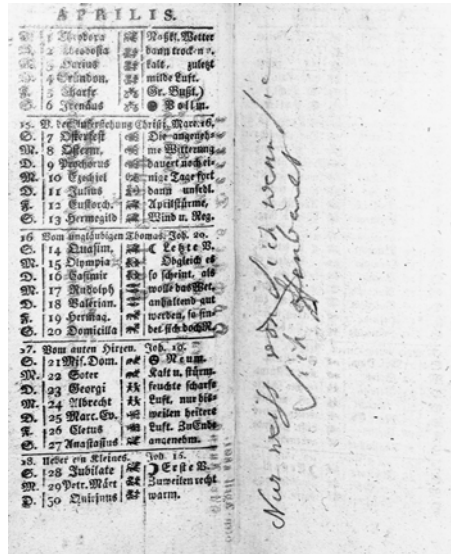 APRILIS.
D. 1 Theodora Naßkl. Wetter
M. 2 Theodosia dann trocken,
kalt, zuletzt
milde Luft.
F. 5 Charfr. Gr. Bußt.)
S. 6 Irenäus Vollm.
15. V. der Auferstehung Christi, Marc. 16.
S. 7 Osterfest Die angeneh-
M. 8 Osterm. me Witterung
D. 9 Prochorus dauert noch ei-
M. 10 Ezechiel nige Tage fort
D. 11 Julius dann unfedl.
F. 12 Eustorch. Aprilstürme,
S. 13 Hermegild Wind u. Reg.
16. Vom ungläubigen Thomas. Joh. 20.
S. 14 Quasim. Letzte V.
M. 15 Olympia Obgleich es
D. 16 Casimir so scheint, als
M. 17 Rudolph wolle das Wet.
D. 18 Valerian. anhaltend gut
F. 19 Hermag. werden, so fin-
S. 20 Domicilla det sich doch R.
17. Vom guten Hirten. Joh. 10.
S. 21 Mis. Dom. Neum.
M. 22 Soter Kalt u. stürm.
D. 23 Georgi feuchte scharfe
M. 24 Albrecht Luft, nur bis-
D. 25 Marc. Ev. weilen heitere
F. 26 Cletus Luft. Zu Ende
S. 27 Anastasius angenehm.
18. Ueber ein Kleines. Joh. 16.
S. 28 Jubilate Erste V.
M. 29 Petr. Märt Zuweilen recht
D. 30 Quirinus warm.
Nur weiss wenn sie
sich